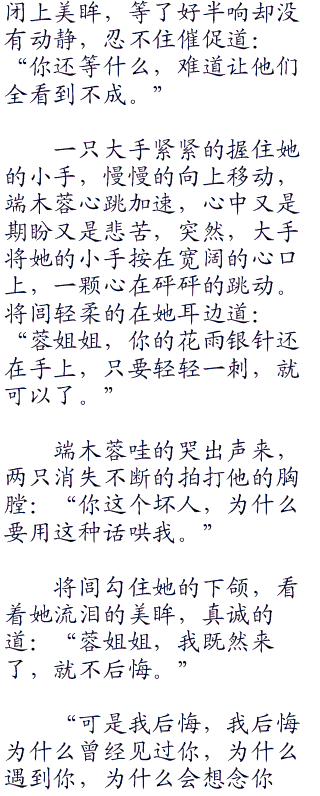 闭上美眸，等了好半响却没
有动静，忍不住催促道：
“你还等什么，难道让他们
全看到不成。”
一只大手紧紧的握住她
的小手，慢慢的向上移动，
端木蓉心跳加速，心中又是
期盼又是悲苦，突然，大手
将她的小手按在宽阔的心口
上，一颗心在砰砰的跳动。
将闾轻柔的在她耳边道：
“蓉姐姐，你的花雨银针还
在手上，只要轻轻一刺，就
可以了。”
端木蓉哇的哭出声来，
两只消失不断的拍打他的胸
膛：“你这个坏人，为什么
要用这种话哄我。”
将闾勾住她的下颌，看
着她流泪的美眸，真诚的
道：“蓉姐姐，我既然来
了，就不后悔。”
“可是我后悔，我后悔
为什么曾经见过你，为什么
遇到你，为什么会想念你